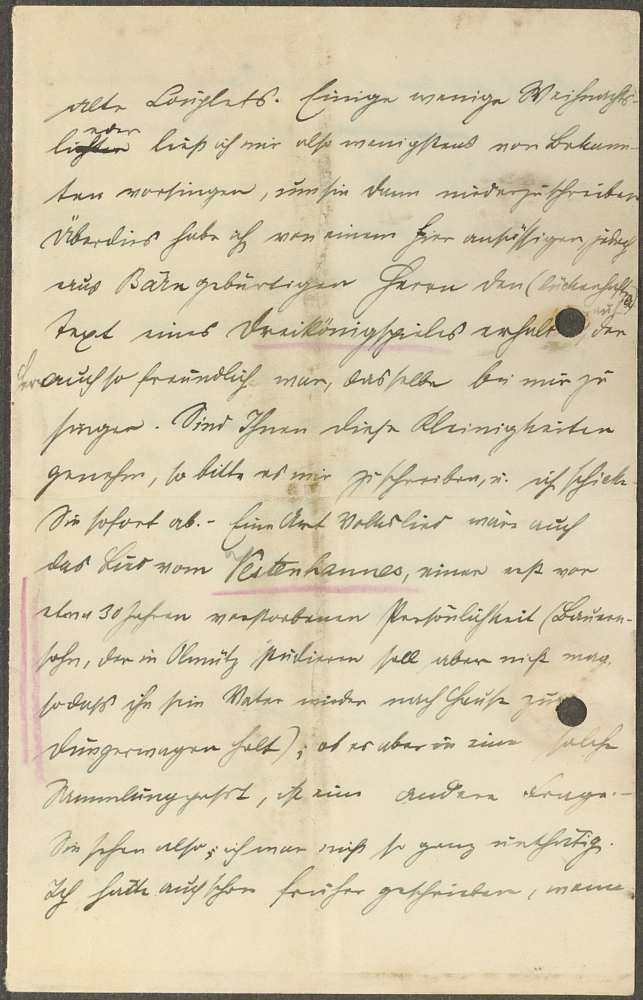 alte Couplets. Einige wenige Weihnachts-
lieder ließ ich mir also wenigstens von Bekann-
ten vorsingen, um sie dann niederzuschreiben
Überdies habe ich von einem hier ansässigen jedoch
aus Bärn gebürtigen Herrn den (lückenhaften)
Text eines Dreikönigspieles erhalten, der
auch so freundlich war, dasselbe bei mir zu
singen. Sind Ihnen diese Kleinigkeiten
genehm, so bitte es mir zu schreiben, u. ich schicke
Sie sofort ab. - Eine Art Volkslied wäre auch
das Lied vom Vestenhannes, einer erst vor
etwa 30 Jahren verstorbenen Persönlichkeit (Bauern-
sohn, der in Olmütz studieren soll aber nicht mag,
sodaß ihn sein Vater wieder nach Hause zum
Düngerwagen holt); ob es aber in eine solche
Sammlung gehört, ist eine andere Frage. -
Sie sehen also, ich war nicht so ganz unthätig.
Ich hätte auch schon früher geschrieben, wenn